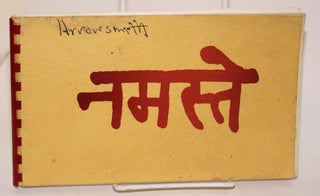 Arrowsmith
नमस्ते